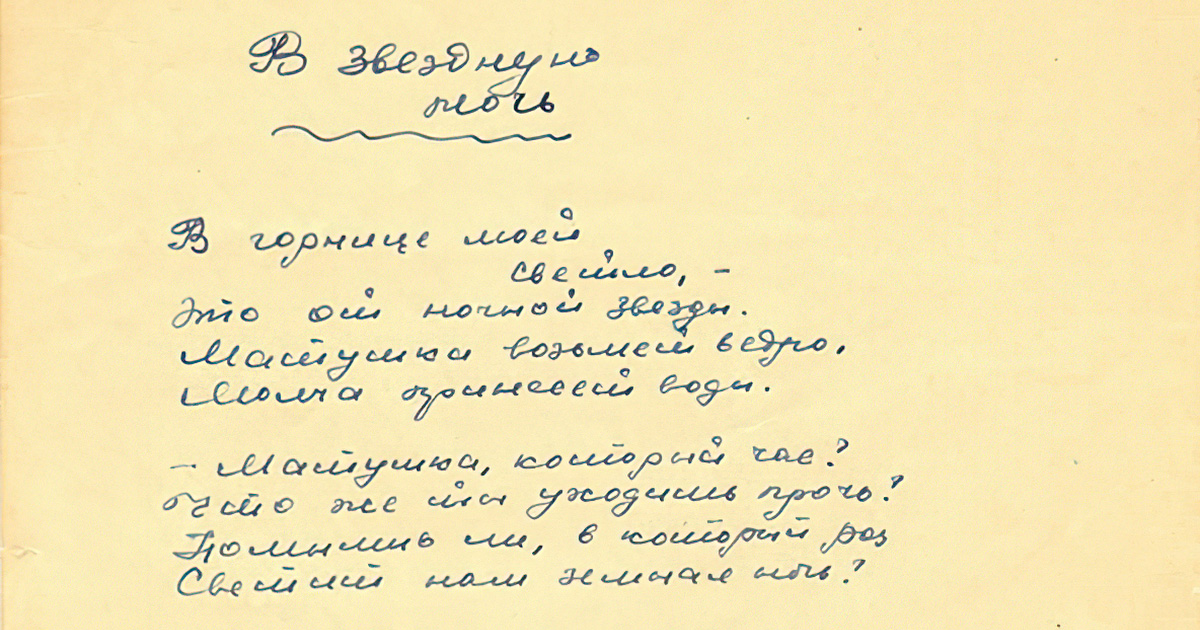 В звездную
ночь
В горнице моей
светло, –
Это от ночной звезды.
Матушка возьмет ведро,
Молча принесет воды.
– Матушка, который час?
Что же ты уходишь прочь?
Помнишь ли, в который раз
Светит нам земная ночь?